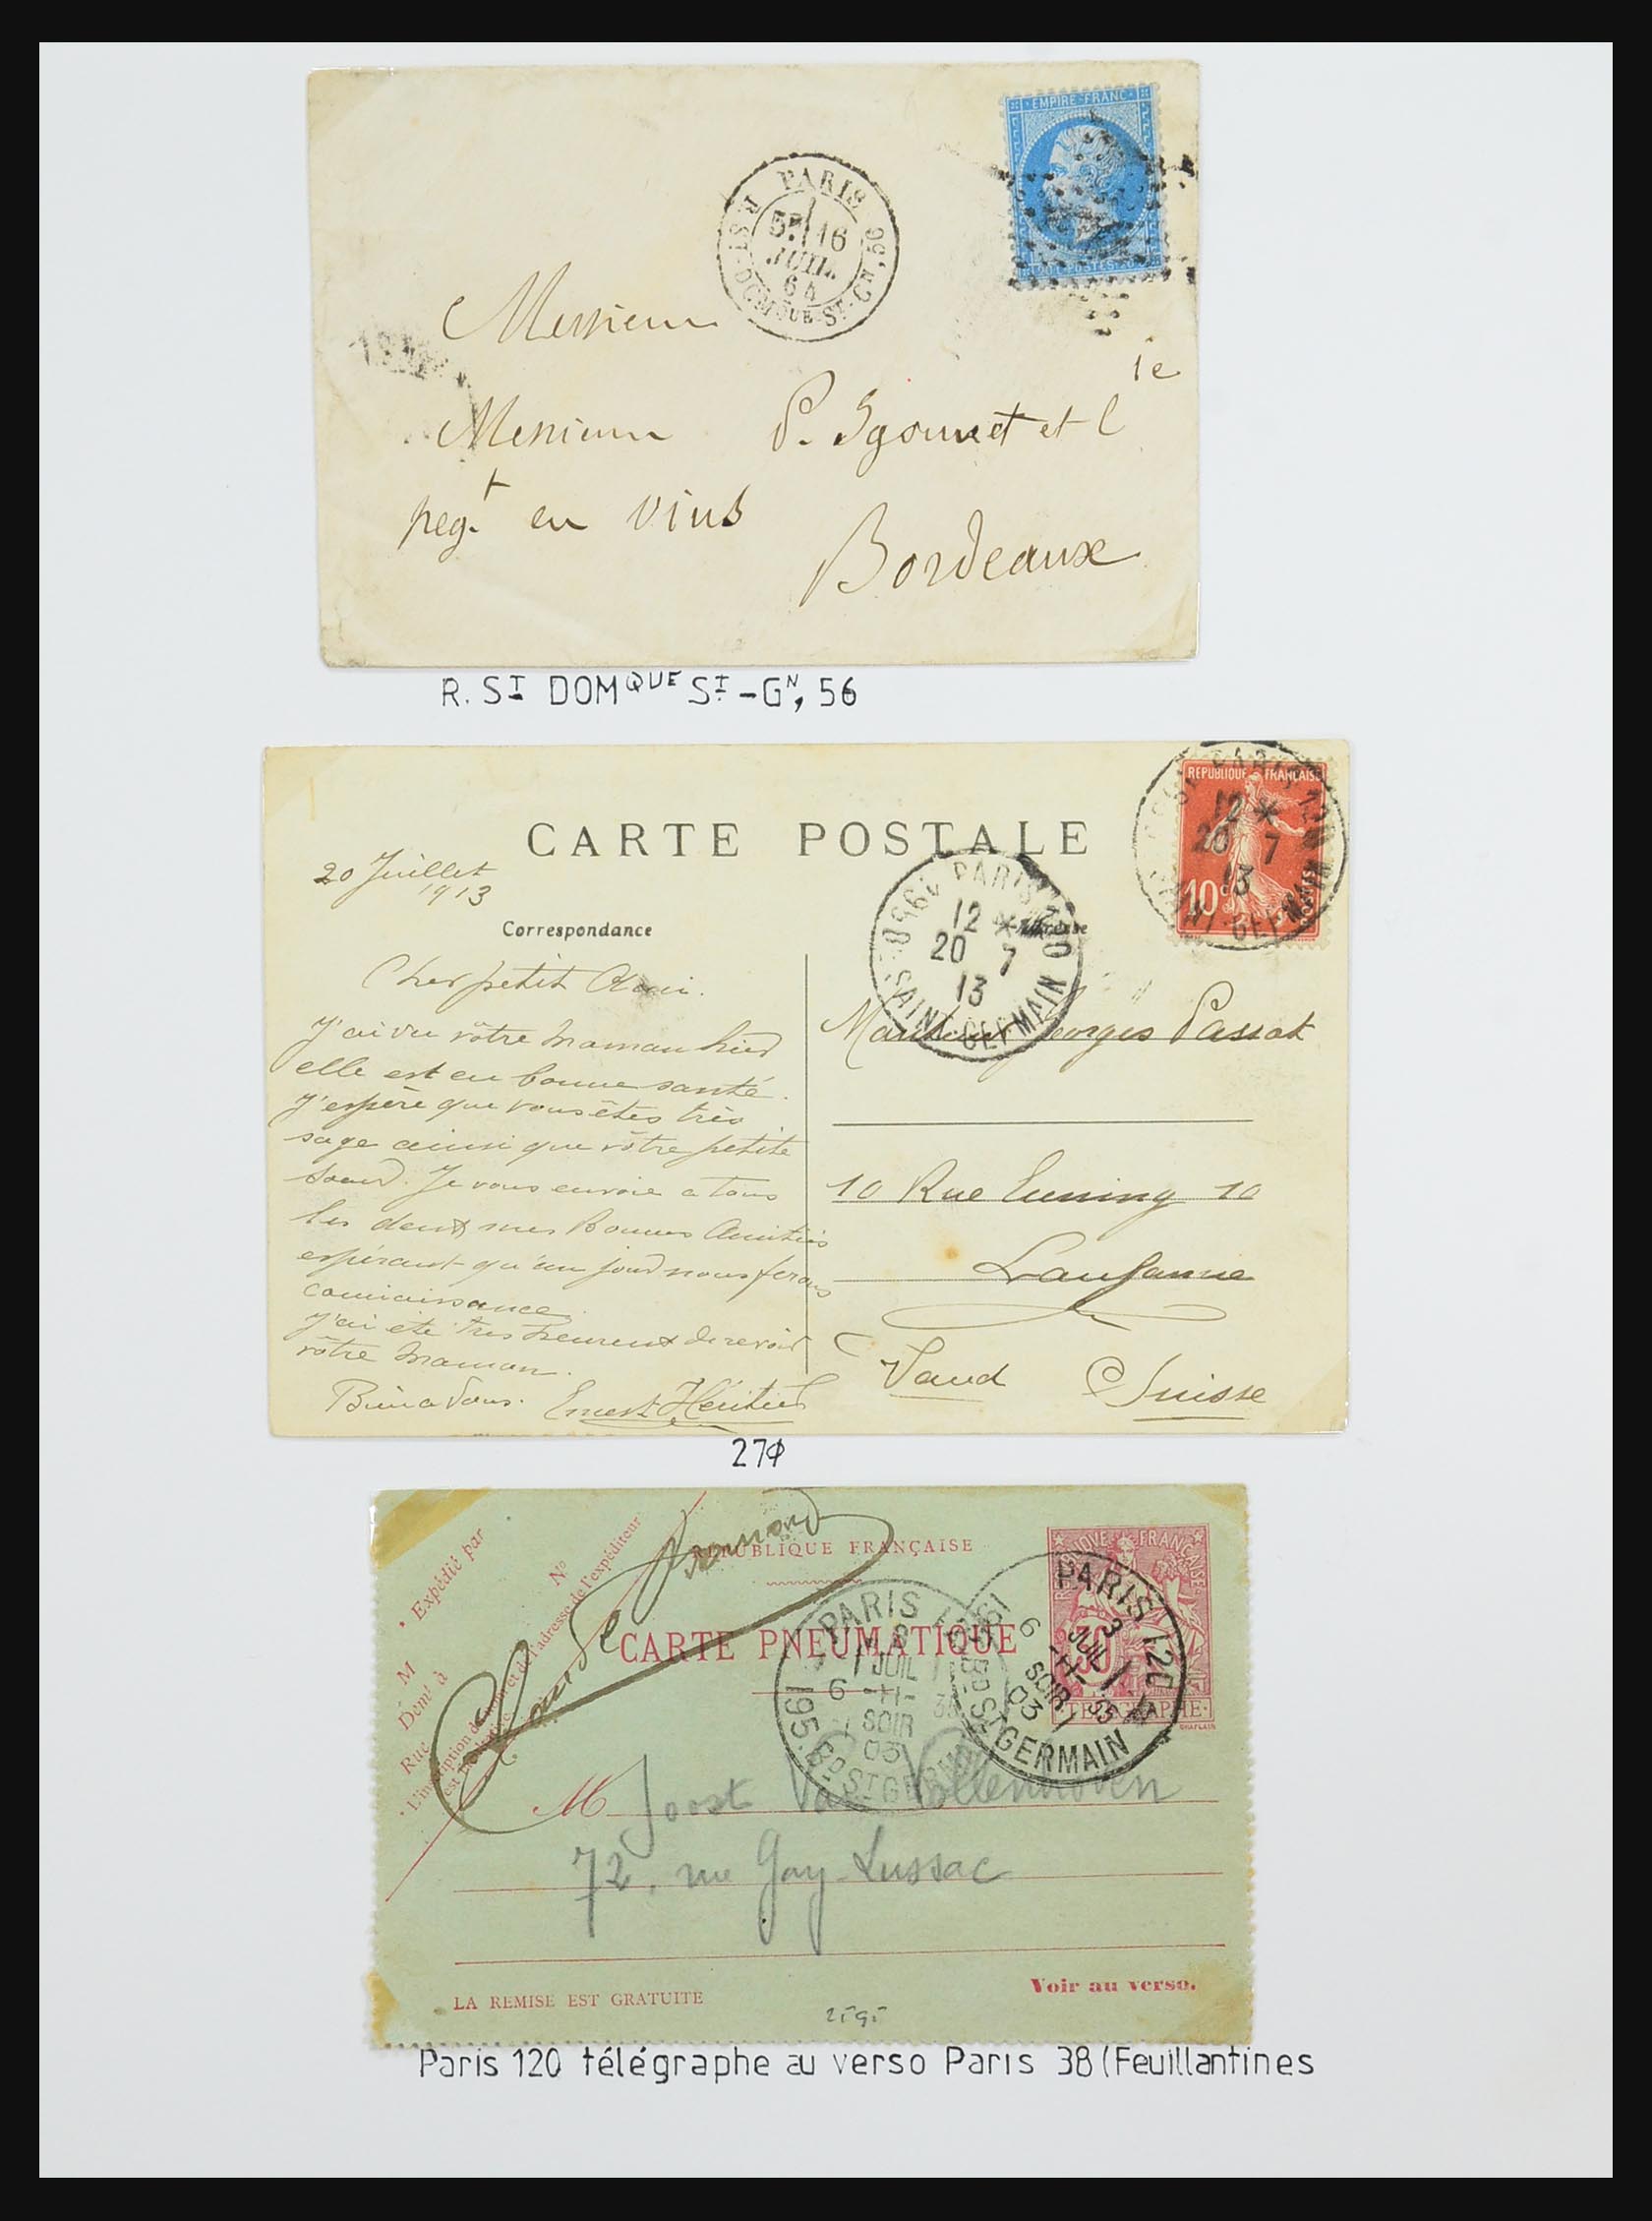 EMPIRE FRANC
PARIS
5E 16
JUIL.
64
R. ST-DOMQUE-ST-GN, 56
20 C POSTES 20 C
Messieurs
Messieurs P. Ygounet et Cie
negt en vins
Bordeaux
R. ST DOMQUE ST-GN, 56
CARTE POSTALE
REPUBLIQUE FRANÇAISE
10c
POSTES
PARIS
12 *
20 7
13
SAINT GERMAIN
PARIS
12 *
20 7
13
Bd SAINT-GERMAIN
20 Juillet
1913
Correspondance
Cher petit Ami.
J'ai vu vôtre maman hier
elle est en bonne santé.
J'espère que vous êtes très
sage ainsi que vôtre petite
soeur. Je vous envoie a tous
les deux mes Bonnes Amitiés
espérant qu'un jour nous ferons
connaissance.
J'ai été très heureux de revoir
vôtre maman.
Bien a Vous. Ernest Héritier
Georges Passat
10 Rue Euning 10
Lausanne
Vaud Suisse
27φ
Expédié par
M
Nº
Demt à
Rue
L'inscription du nom et de l'adresse de l'expéditeur
est facultative.
REPUBLIQUE FRANÇAISE
CARTE PNEUMATIQUE
REPUBLIQUE FRANÇAISE
30
TELEGRAPHE
CHAPLAIN
PARIS 120
3
JUIL
6 -H- 35
SOIR
03
195. Bd ST GERMAIN
PARIS 120
3
JUIL
6 -H- 35
SOIR
03
195. Bd ST GERMAIN
M Joost Van Vollenhoven
72, rue Gay-Lussac
Voir au verso.
LA REMISE EST GRATUITE
Paris 120 télégraphe au verso Paris 38 (Feuillantines